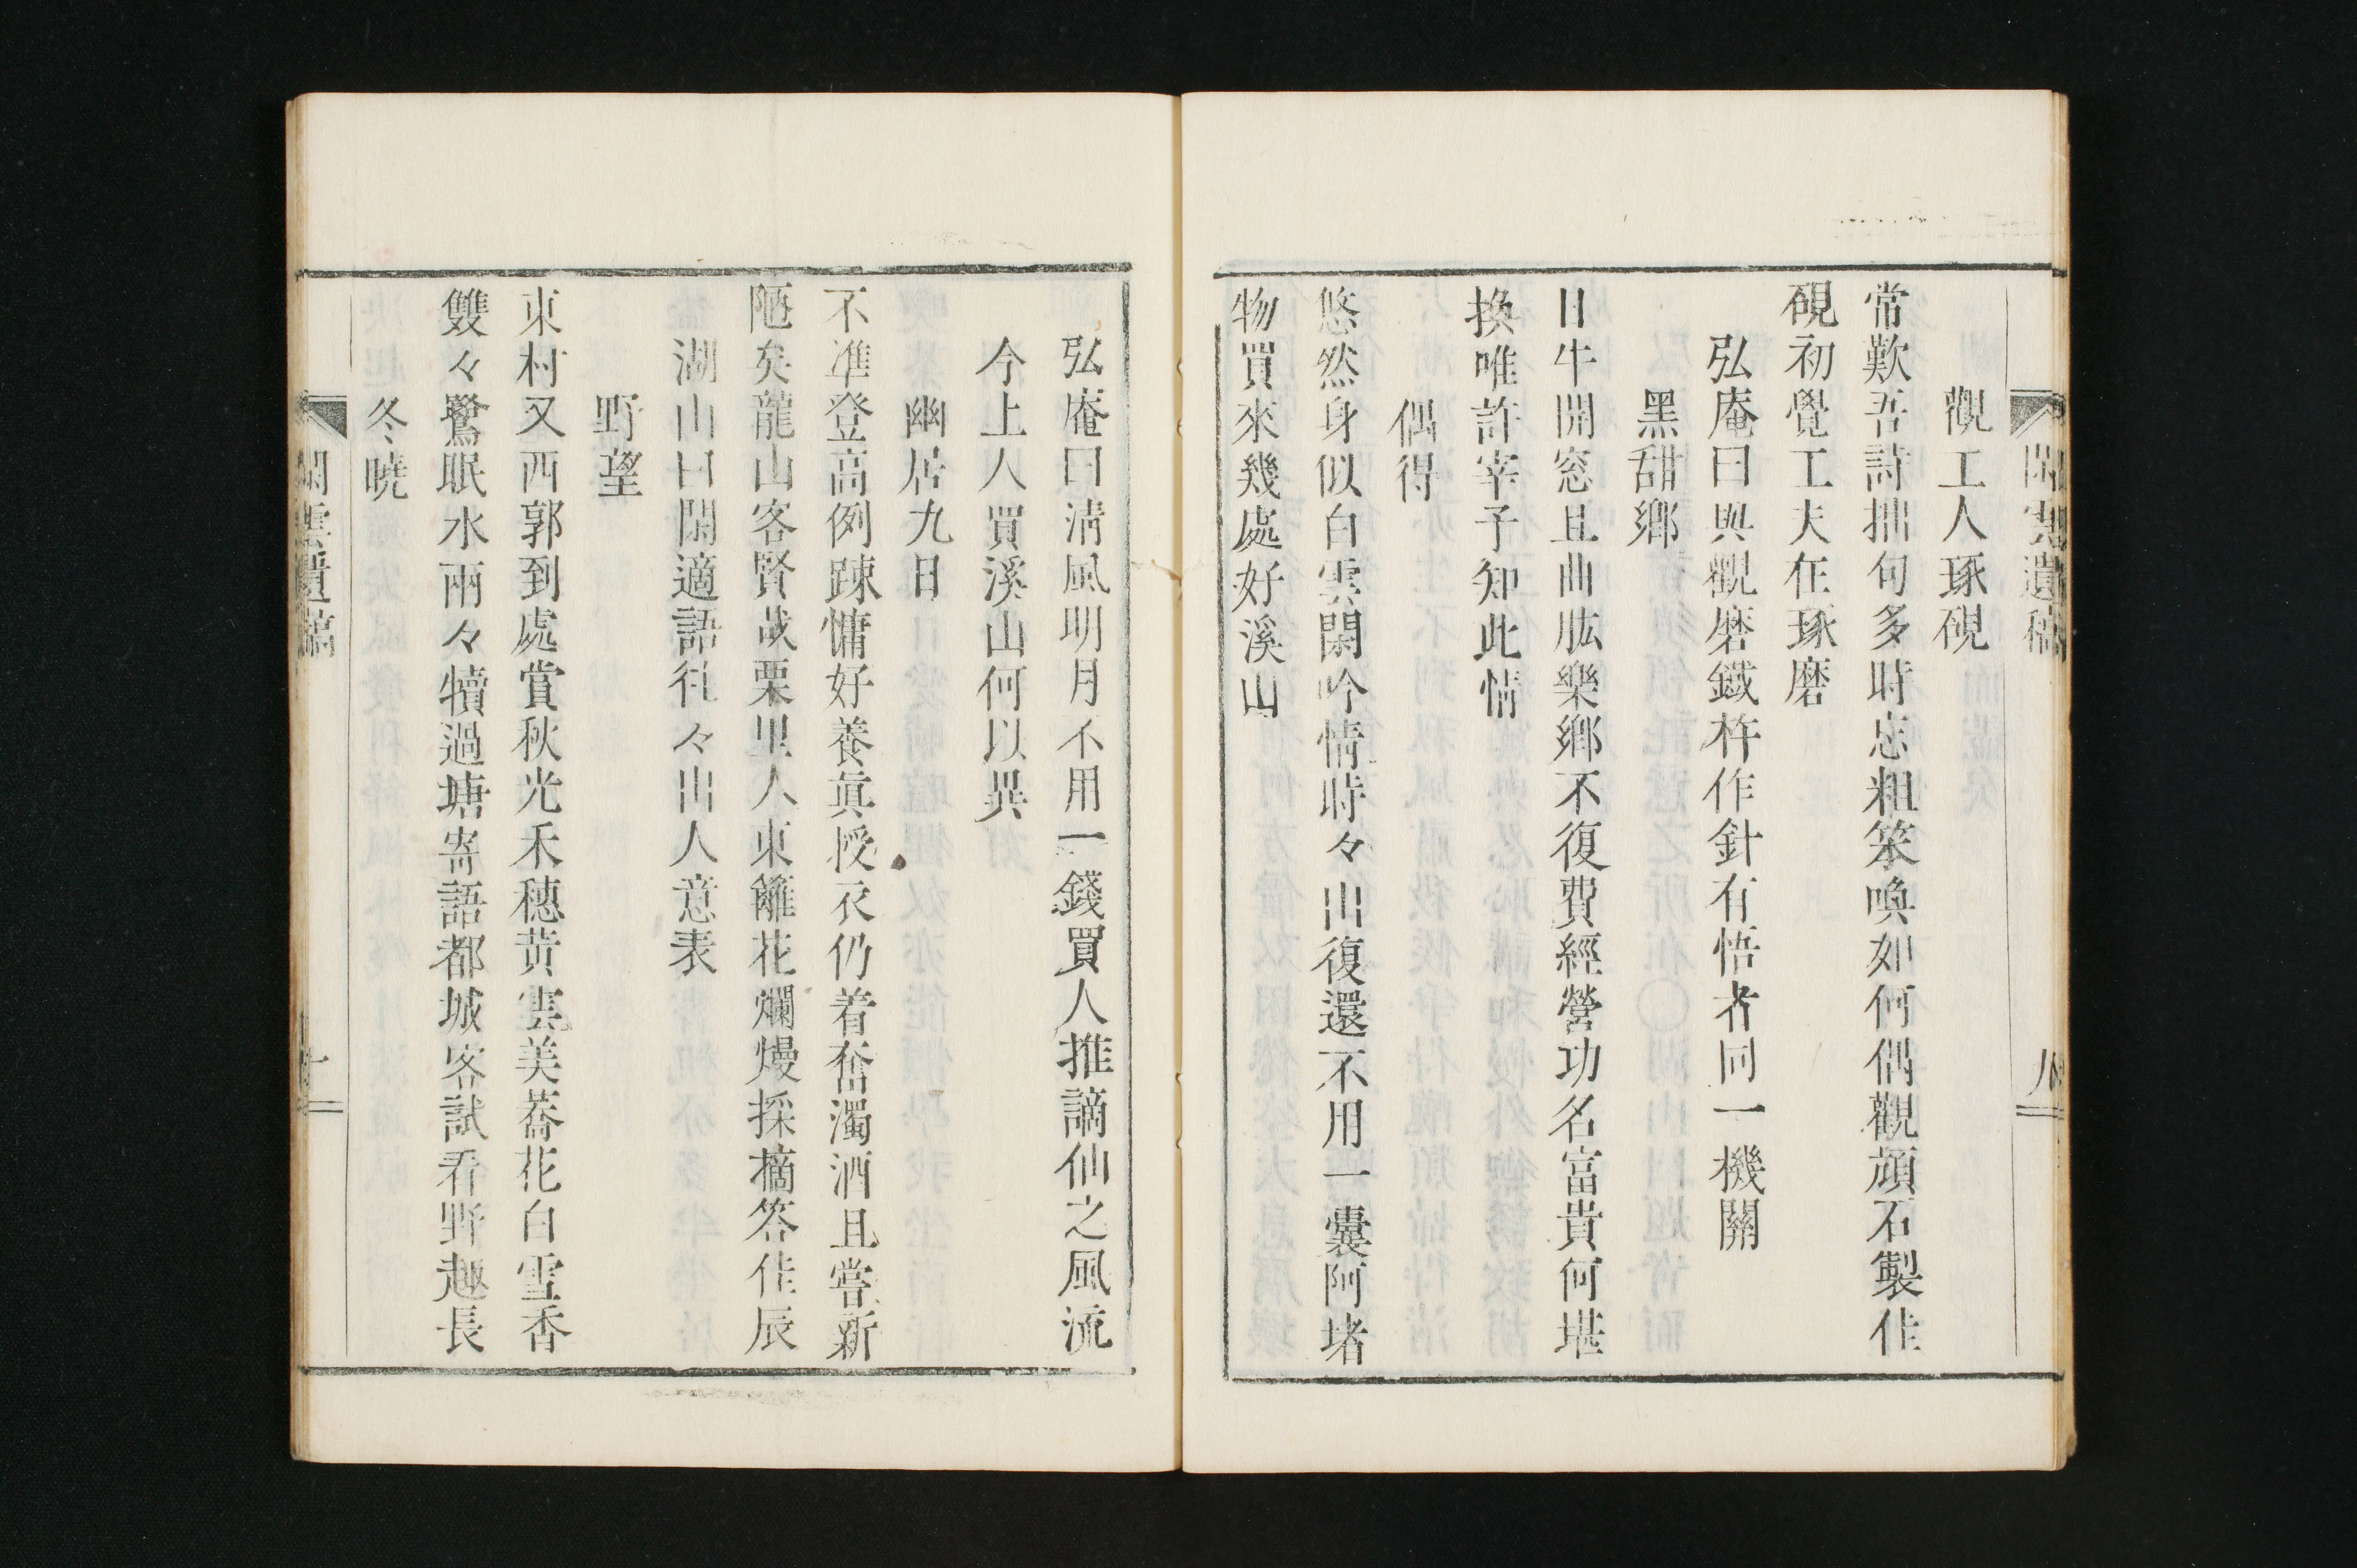 閑雲遺稿 八
觀工人琢硯
常歎吾詩拙句多時忘粗笨喚如何偶觀頑石製佳
硯初覺工夫在琢磨
弘庵曰與觀磨鐵杵作針有悟者同一機關
黑甜鄉
日午開窓且曲肱樂鄉不復費經營功名富貴何堪
換唯許宰予知此情
偶得
悠然身似白雲閑吟情時々出復還不用一囊阿堵
物買來幾處好溪山
弘庵曰淸風明月不用一錢買人推謫仙之風流
今上人買溪山何以異
幽居九日
不準登高例踈慵好養眞授衣仍着舊濁酒且嘗新
陋矣龍山客賢哉栗里人東籬花爛熳採摘答佳辰
湖山曰閑適語徃々出人意表
野望
東村又西郭到處賞秋光禾穗黃雲美蕎花白雪香
雙々鷺眠水兩々犢過塘寄語都城客試看野趣長
冬曉
閑雲遺稿